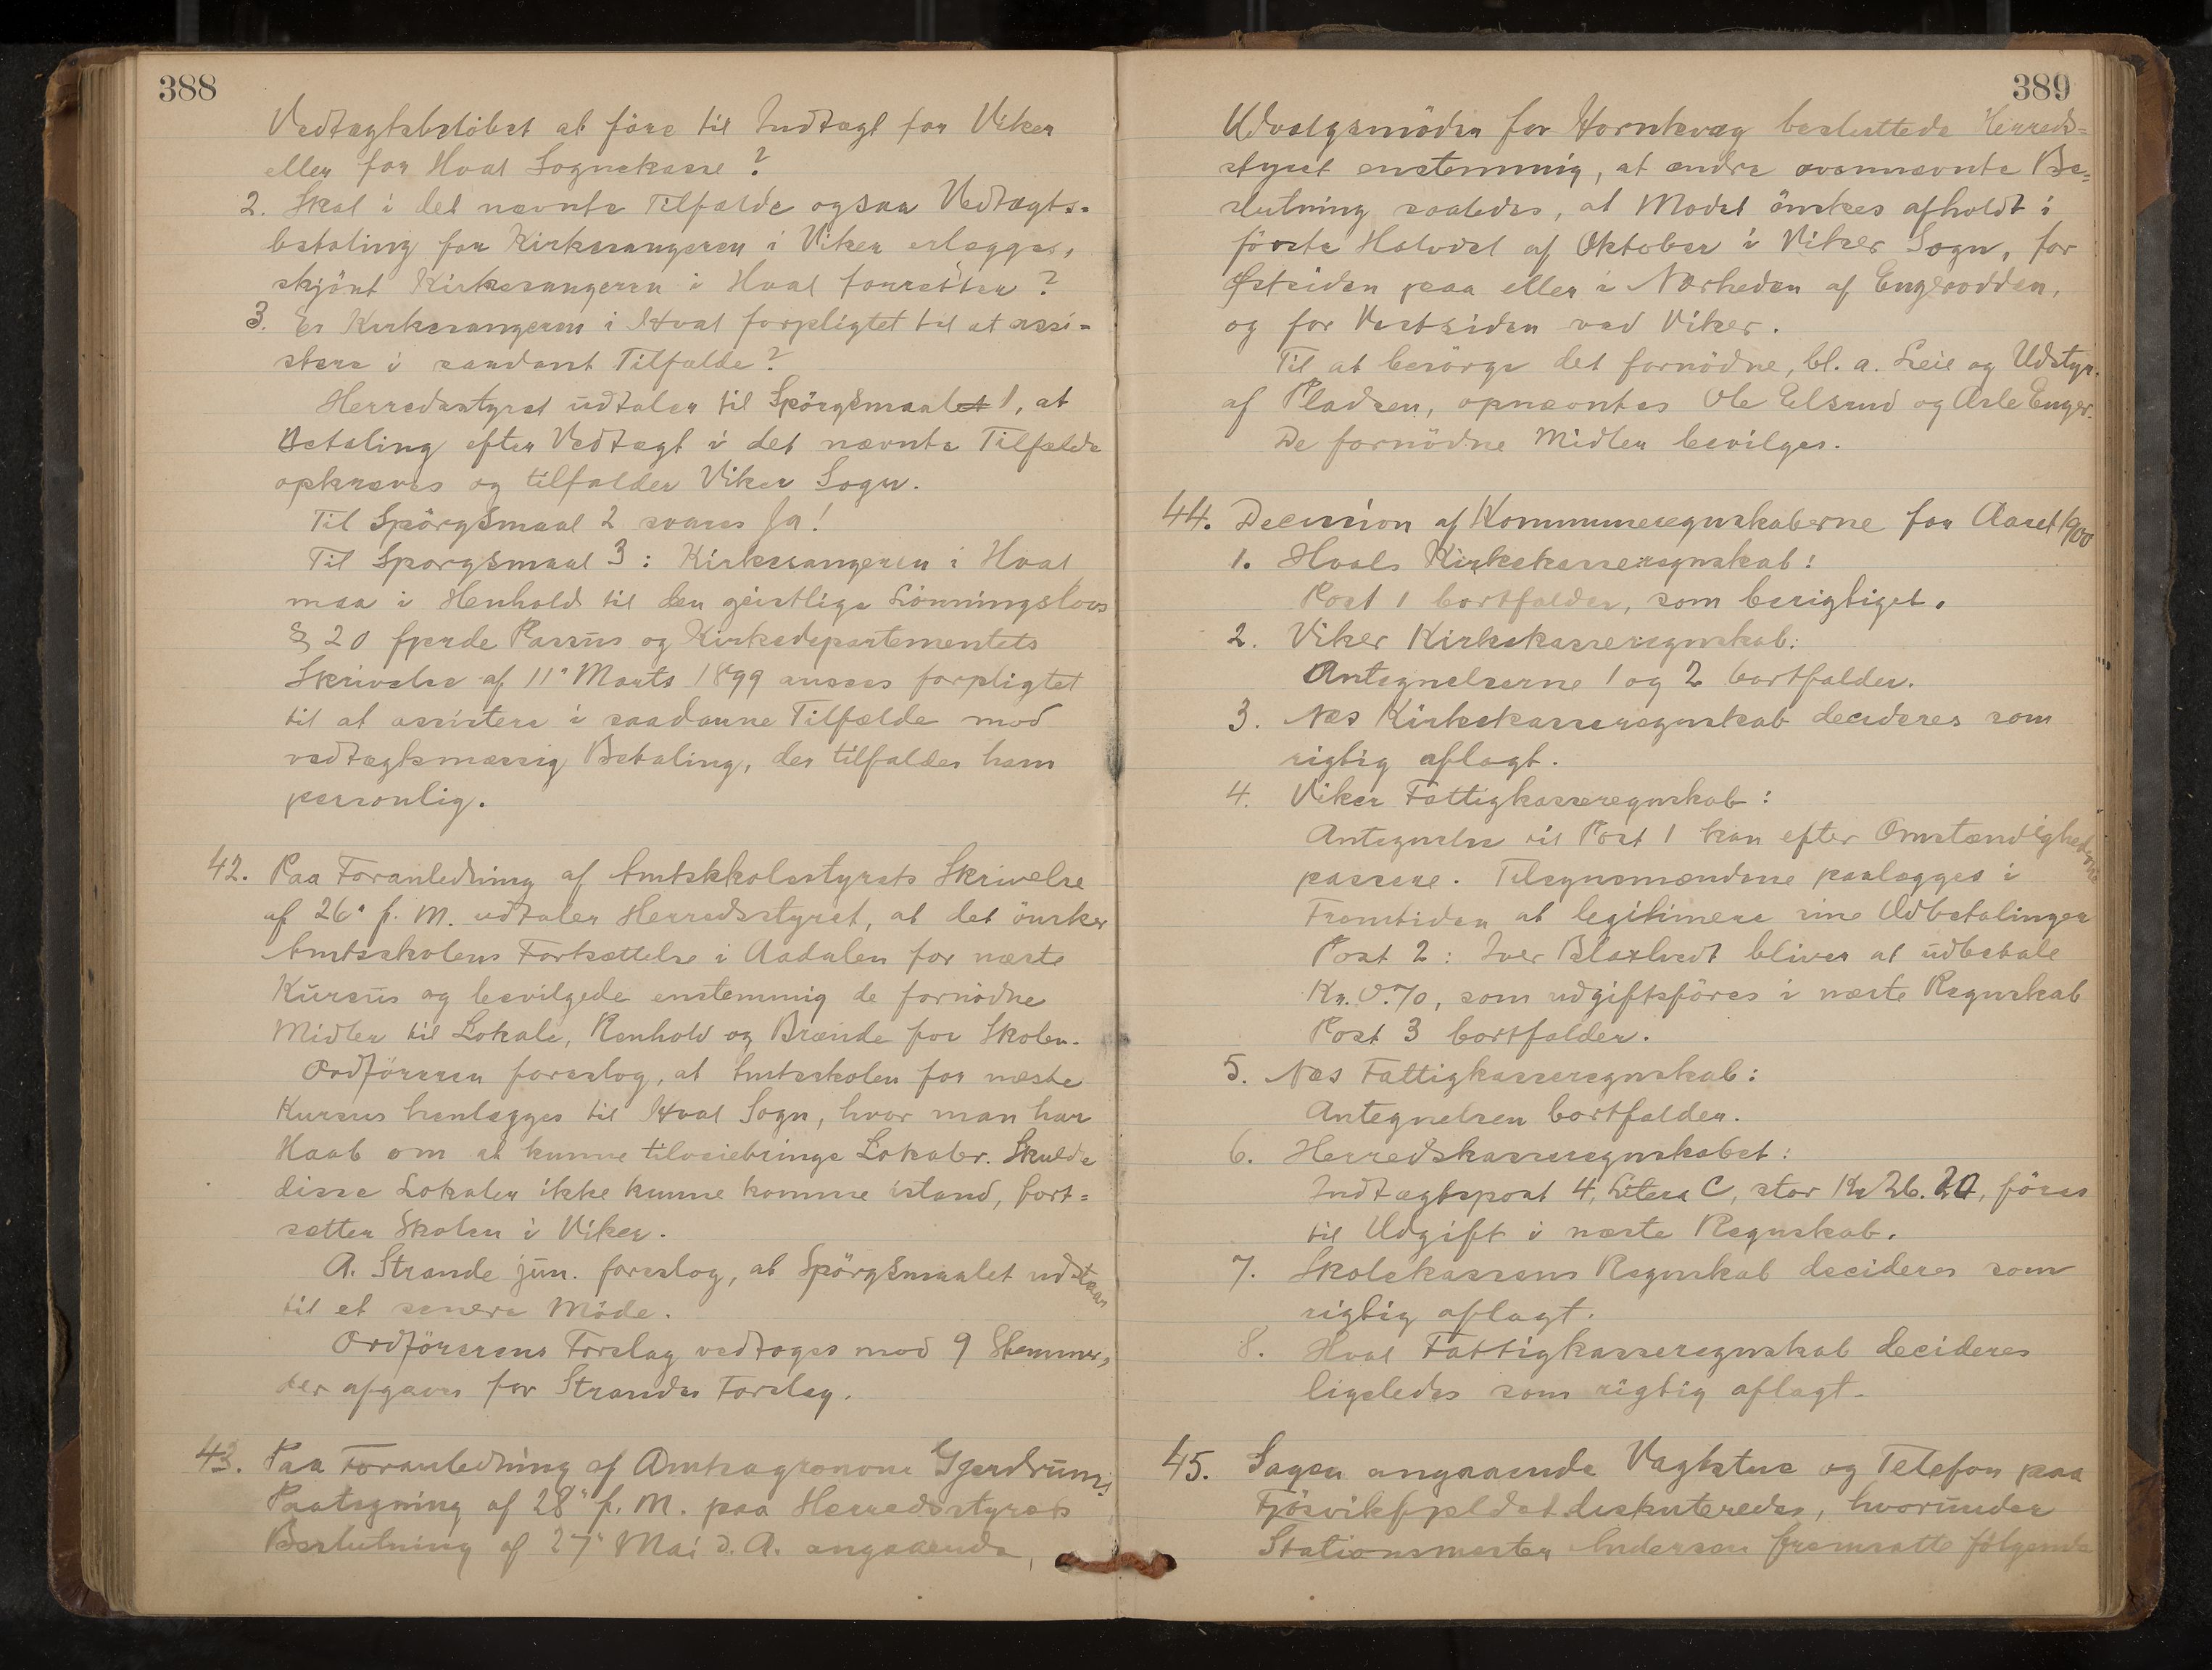 388
Vedtagtsbeløbet at føre til Indtægt for Viker
eller for Hval Sognekasse?
2. Skal i det nævnte Tilfælde ogsaa Vedtægts-
betaling for Kirkesangeren i Viker erlægges,
skjönt Kirkesangeren i Hval forretter?
3. Er Kirkesangeren i Hval forpligtet til at assi-
stere i saadant Tilfælde?
Herredsstyret udtaler til Spörgsmaalet 1, at
Betaling efter Vedtægt i det nævnte Tilfælde
opkræves og tilfalder Viker Sogn.
Til Spörgsmaal 2 svares Ja!
Til Spørgsmaal 3: Kirkesangeren i Hval
maa i Henhold til den geistlige Lönningslovs
§ 20 fjerde Passus og Kirkedepartementets
Skrivelse af 11te Marts 1899 ansees forpligtet
til at assistere i saadanne Tilfælde mod
vedtægtsmæssig Betaling, der tilfalder ham
personlig.
42. Paa Foranledning af Amtsskolestyrets Skrivelse
af 26' f. M. udtaler Herredsstyret, at det önsker
Amtsskolens Fortsættelse i Aadalen for næste
Kursus og bevilgede enstemmig de fornödne
Midler til Lokale, Renhold og Brænde for Skolen.
Ordföreren foreslog, at Amtsskolen for næste
Kursus henlægges til Hval Sogn, hvor man har
Haab om at kunne tilveiebringe Lokaler. Skulde
disse Lokaler ikke kunne komme istand, fort-
sætter Skolen i Viker.
A. Strande jun. foreslog, at Spörgsmaalet udstaar
til et senere Möde.
Ordförerens Forslag vedtoges mod 9 Stemmer,
der afgaves for Strandes Forslag.
43. Paa Foranledning af Amtsagronom Gjerdrums
Paategning af 28' f. M. paa Herredsstyrets
Beslutning af 27' Mai d. A. angaaende
389
Udvalgsmöder for Hornkvæg besluttede Herreds-
styret enstemmig, at ændre ovennævnte Be-
slutning saaledes, at Mödet önskes afholdt i
förste Halvdel af Oktober i Viker Sogn, for
Østsiden paa eller i Nærheden af Engerodden,
og for Vestsiden ved Viker.
Til at besörge det fornödne, bl. a. Leie og Udstyr
af Pladsen, opnævntes Ole Elsrud og Asle Enger.
De fornödne Midler bevilges.
44. Decision af Kommuneregnskaberne for Aaret 1900
1. Hvals Kirkekasseregnskab:
Post 1 bortfalder, som berigtiget.
2. Viker Kirkekasseregnskab:
Antegnelserne 1 og 2 bortfalder.
3. Næs Kirkekasseregnskab decideres som
rigtig aflagt.
4. Viker Fattigkasseregnskab:
Antegnelse til Post 1 kan efter Omstændighederne
passere. Tilsynsmændene paalægges i
Fremtiden at legitimere sine Udbetalinger
Post 2: Iver bliver at udbetale
Kr. 0.70, som udgiftsföres i næste Regnskab
Post 3 bortfalder.
5. Næs Fattigkasseregnskab:
Antegnelsen bortfalder.
6. Herredskasseregnskabet:
Indtægtspost 4, Litera C, stor Kr 26.20, föres
til Udgift i næste Regnskab.
7. Skolekassens Regnskab decideres som
rigtig aflagt.
8. Hval Fattigkasseregnskab decideres
ligeledes som rigtig aflagt.
45. Sagen angaaende Vagtstue og Telefon paa
Fjösvikfjeldet diskuteredes, hvorunder
Stationsmester Anderson fremsatte fölgende